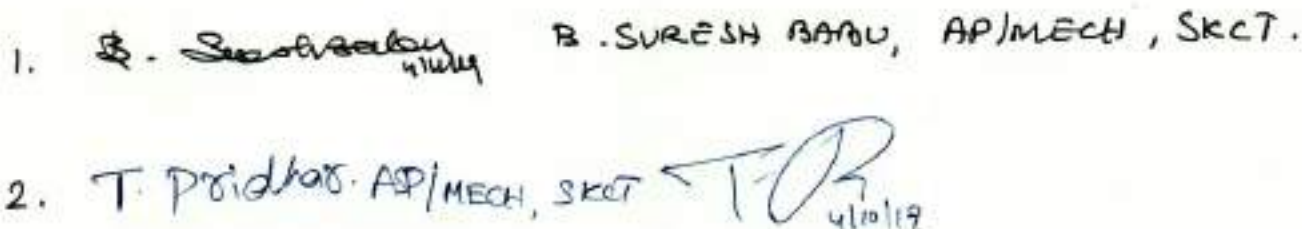 1. B. Sureshbabu 4/10/19 B. SURESH BABU, AP/MECH, SKCT.
2. T. Pridhar. AP/MECH, SKCT T.P 4/10/19